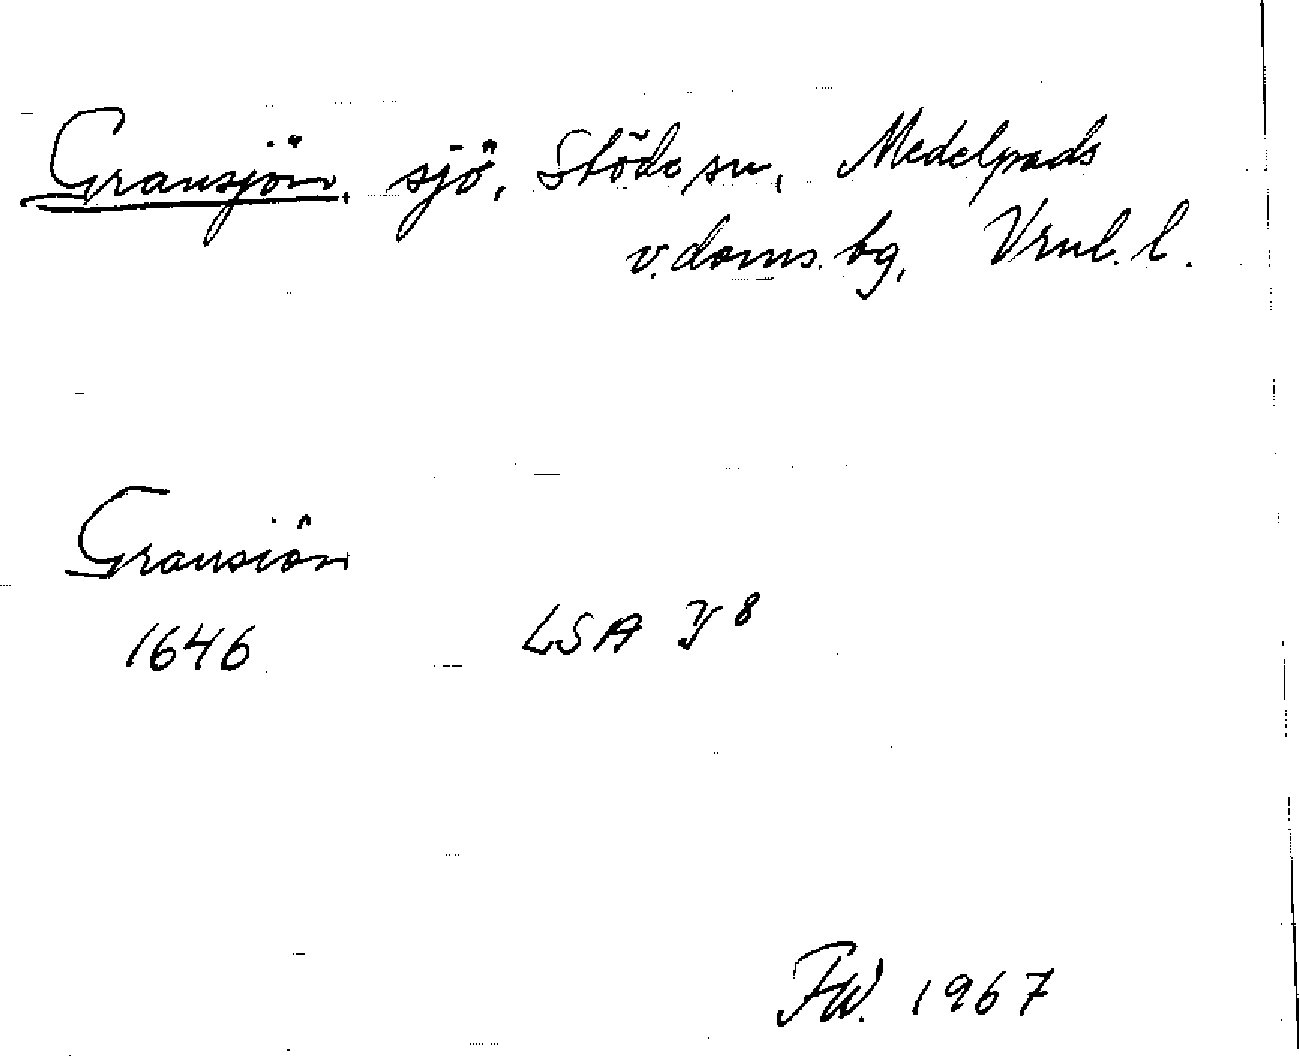 Gransjön, sjö, Stöde sn, Medelpads
v. doms. bg, Vrnl. l.
Gransiön
1646 LSA Y 8
FW. 1967